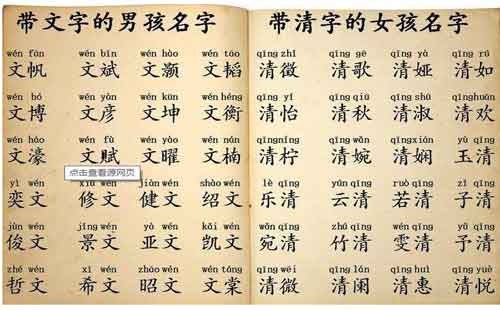 带文字的男孩名字
wén fān wén bīn wén hào wén tāo
文帆 文斌 文灏 文韬
wén bó wén yàn wén kūn wén héng
文博 文彦 文坤 文衡
wén háo wén fù wén yào wén nán
文濠 文赋 文曜 文楠
点击查看源网页
yì wén xiū wén jiàn wén shào wén
奕文 修文 健文 绍文
jùn wén jǐng wén yà wén kǎi wén
俊文 景文 亚文 凯文
zhé wén xī wén zhāo wén wén táng
哲文 希文 昭文 文棠
带清字的女孩名字
qīng zhǐ qīng gē qīng yà qīng rú
清徵 清歌 清娅 清如
qīng yí qīng qiū qīng shū qīnghuān
清怡 清秋 清淑 清欢
qīngníng qīng wǎn qīngxián yù qīng
清柠 清婉 清娴 玉清
lè qīng yún qīng ruò qīng zǐ qīng
乐清 云清 若清 子清
wǎn qīng zhú qīng wén qīng yǔ qīng
宛清 竹清 雯清 予清
qīng wēi qīng lán qīng huì qīng yuè
清微 清阑 清惠 清悦